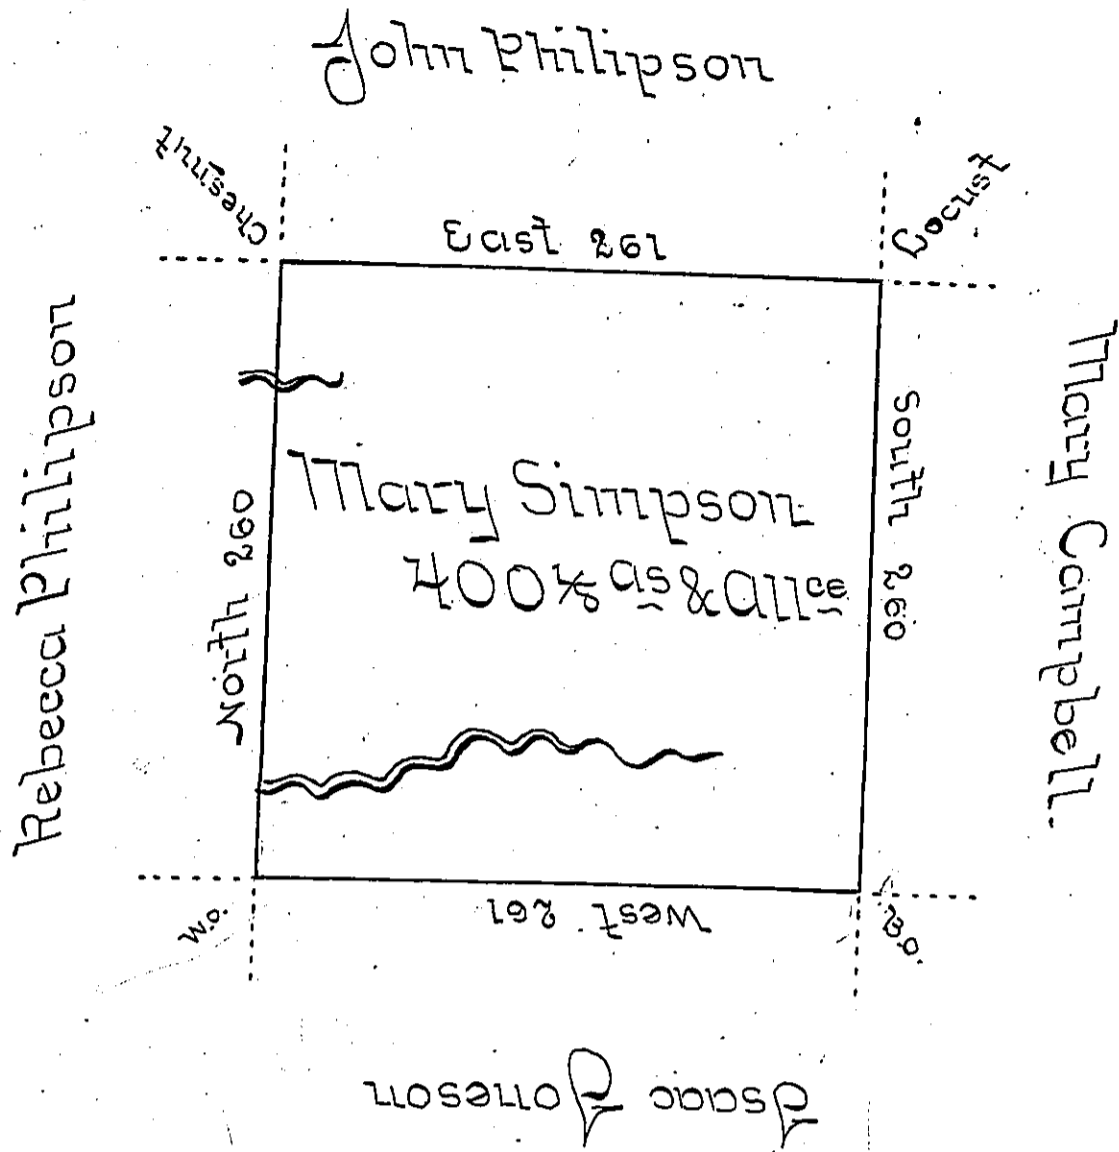 John Philipson
Chesnut
Locust
East 261
Rebecca Philipson
North 260
Mary Simpson
400 as & allce
South 260
Mary Campbell.
W.O.
West 261
Isaac Joneson